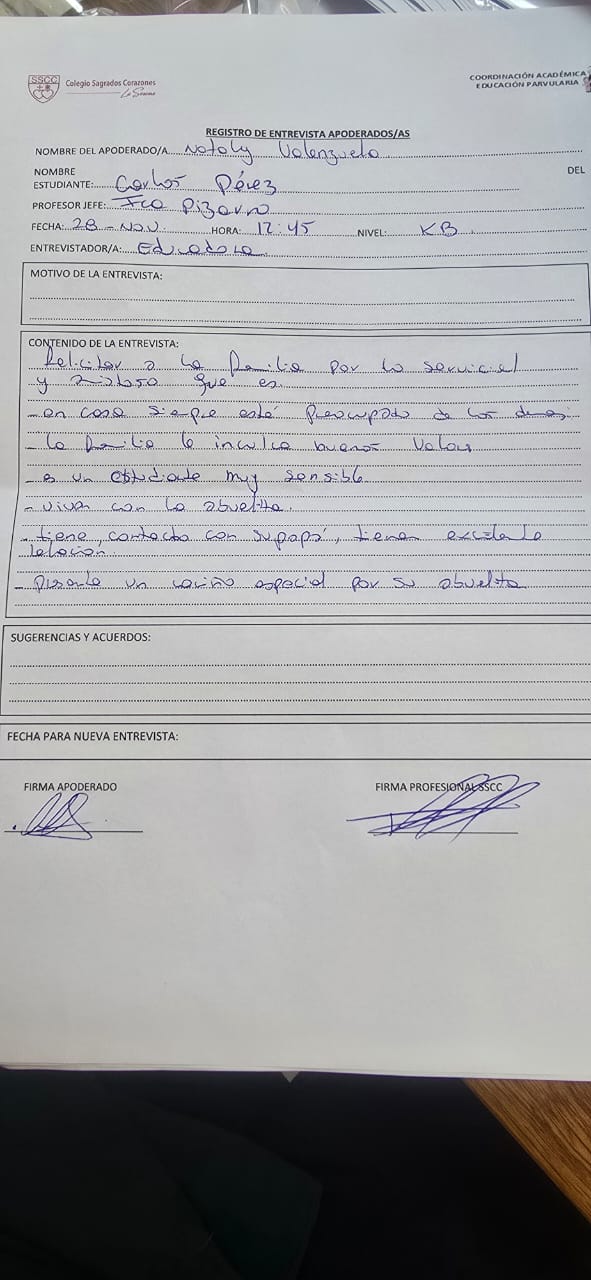 SSCC
Colegio Sagrados Corazones
La Serena
COORDINACIÓN ACADÉMICA
EDUCACIÓN PARVULARIA
REGISTRO DE ENTREVISTA APODERADOS/AS
NOMBRE DEL APODERADO/A Nataly Valenzuela
NOMBRE DEL
ESTUDIANTE: Carlos Pérez
PROFESOR JEFE: Fca Pizarro
FECHA: 28-Nov. HORA: 12:45 NIVEL: KB
ENTREVISTADOR/A: Educadora
MOTIVO DE LA ENTREVISTA:
CONTENIDO DE LA ENTREVISTA:
Felicitar a la familia por lo servicial
y que es.
- en casa siempre está preocupado de los demas
- la familia le inculca buenos valores
- es un estudiante muy sensible.
- viven con la abuelita.
- tiene contacto con su papá, tienen excelente
relación.
- Presenta un cariño especial por su abuelita
SUGERENCIAS Y ACUERDOS:
FECHA PARA NUEVA ENTREVISTA:
FIRMA APODERADO FIRMA PROFESIONAL SSCC